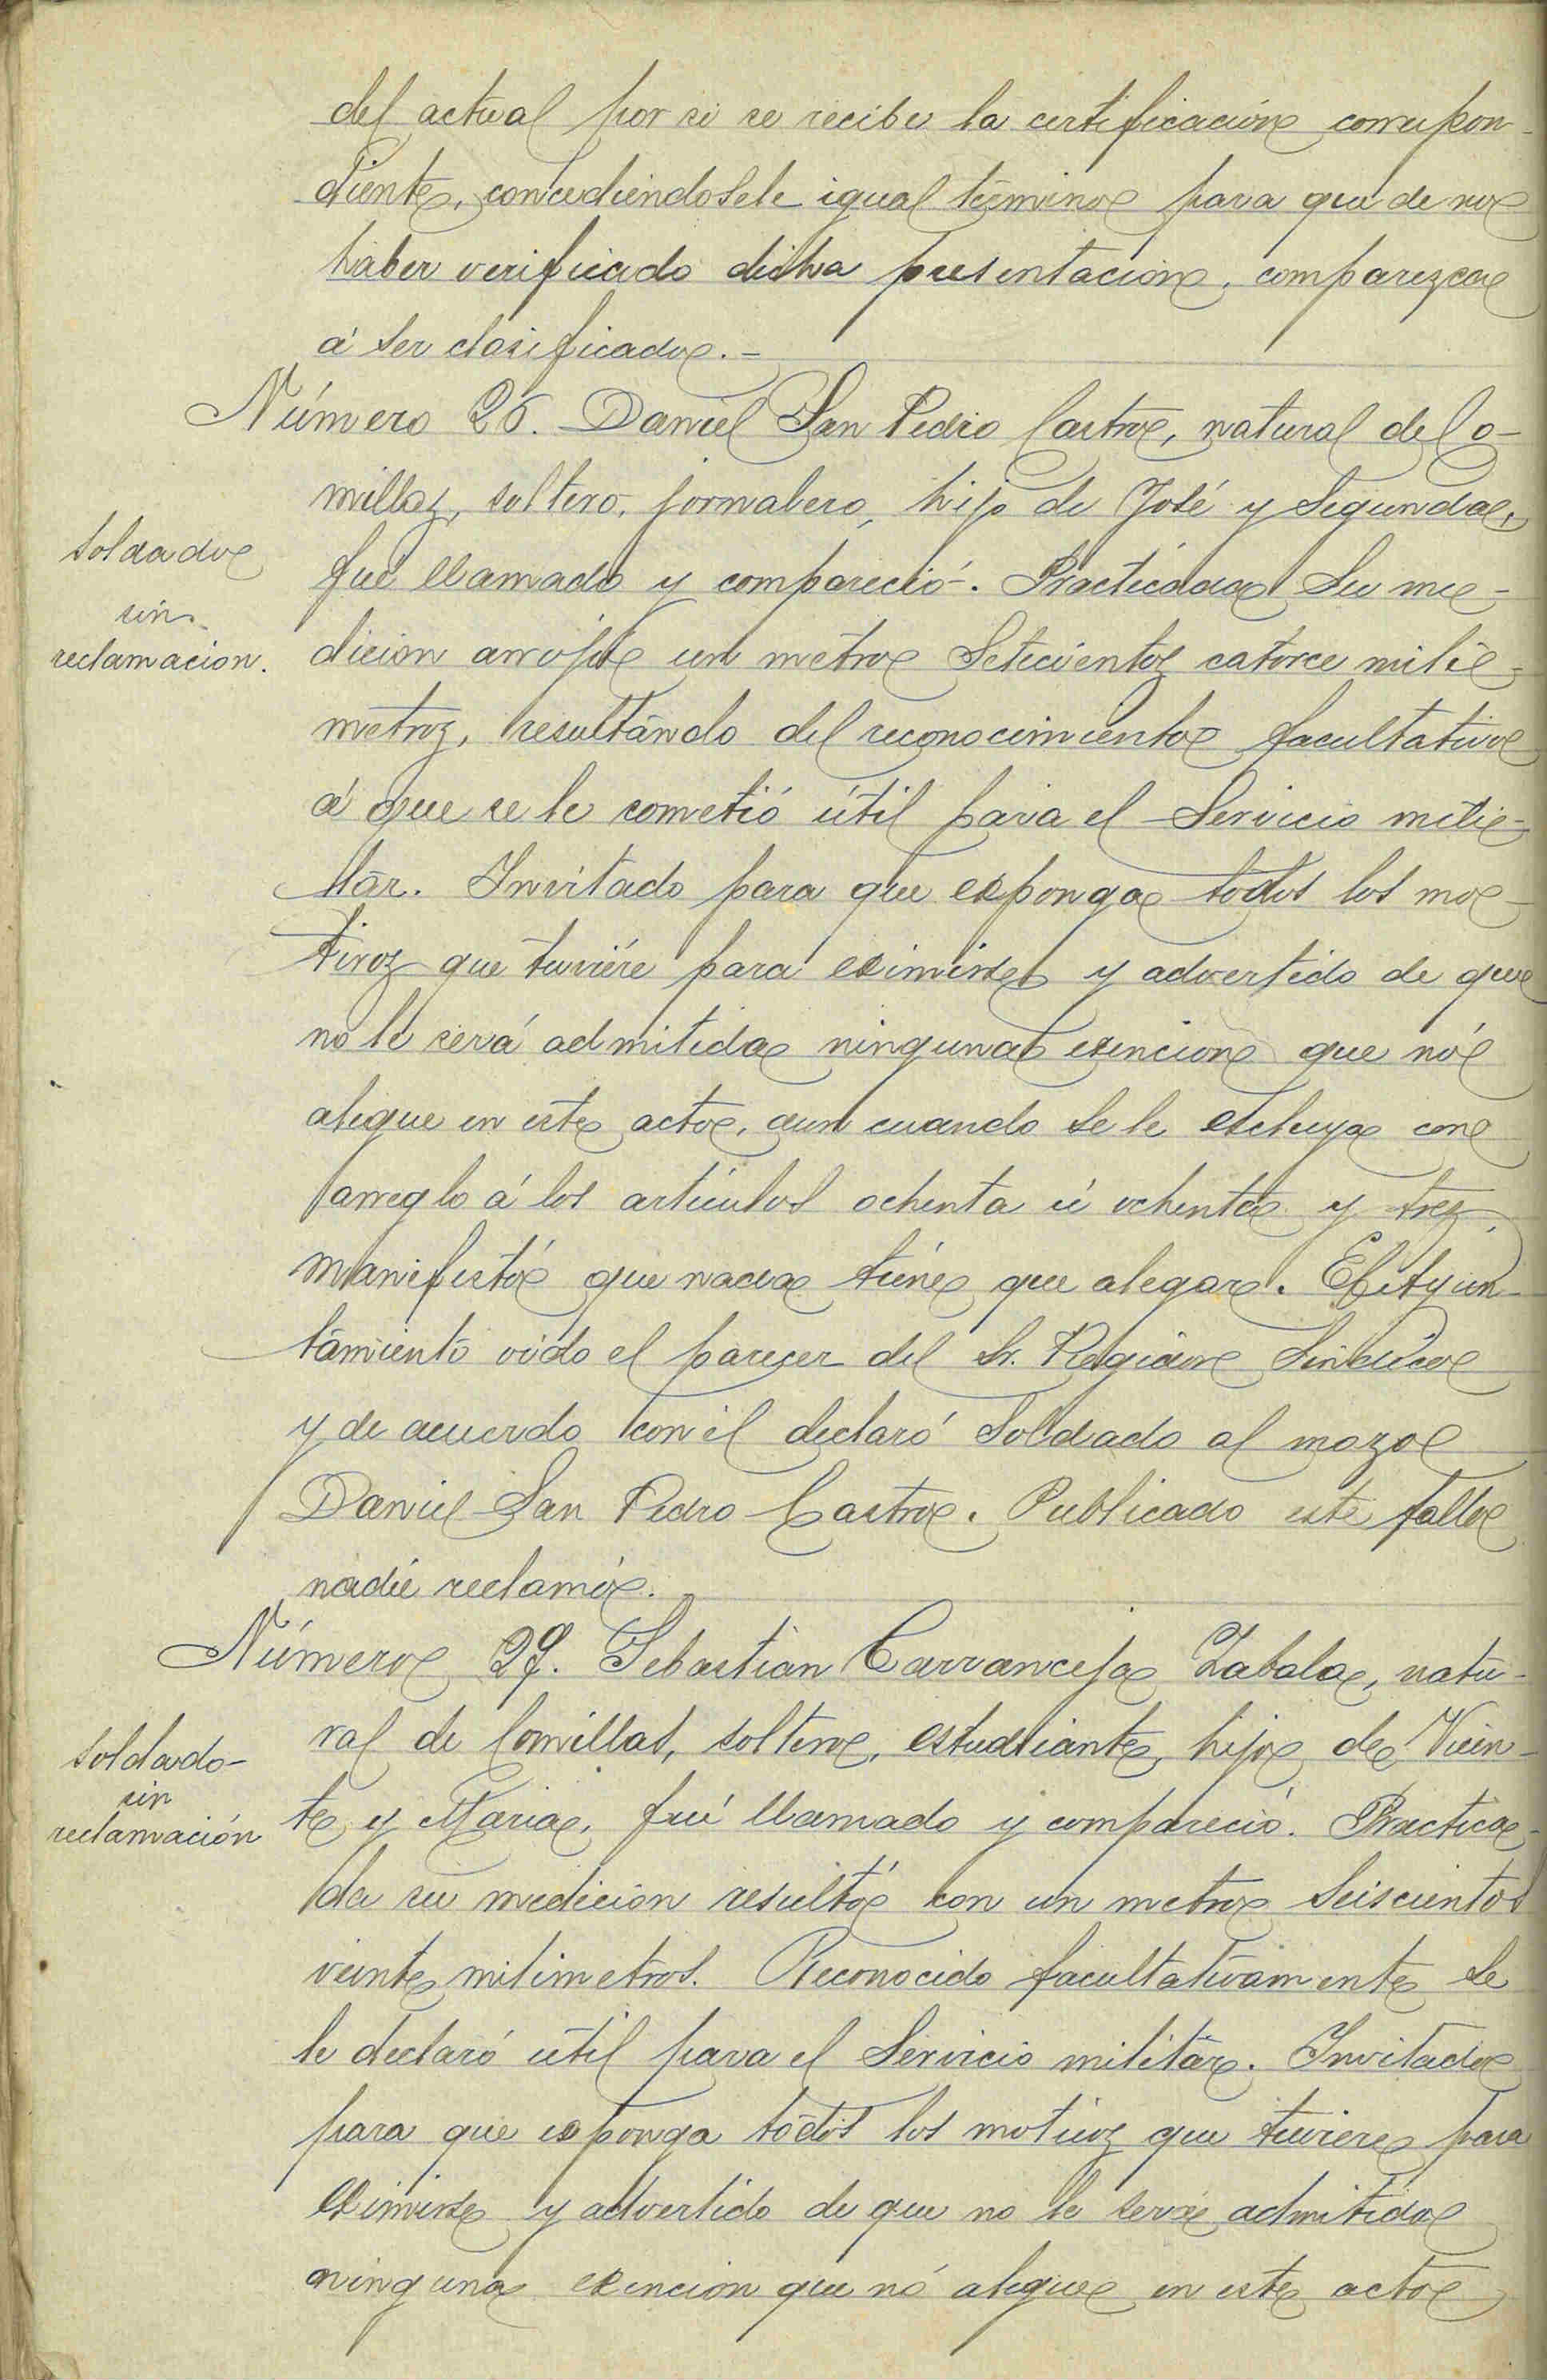 del actual por si se recibe la certificación correspon-
diente, concediendosele igual término para que de no
haber verificado dicha presentacion, comparezca
á ser clasificado.-
Número 26. Daniel San Pedro Castro, natural de Co-
millaz, soltero, jornalero, hijo de José y Segunda,
soldado
sin
reclamacion.
fué llamado y compareció. Practicada su me-
dicion arrojó un metro setecientoz catorce milí-
metroz, resultándo del reconocimiento facultativo
á que se le sometió útil para el Servicio mili-
tár. Invitado para que exponga todos los mo-
tivoz que tuviére para eximirse y advertido de que
no le será admitida ninguna exencion que nó
alegue en este acto, aun cuando se le excluya con
arreglo á los artículos ochenta ú ochenta y trez,
manifestó que nada tiéne que alegar. El Ayun-
támiento oido el parecer del Sr. Regidor Sindico
y de acuerdo con él declaró Soldado al mozo
Daniel San Pedro Castro. Publicado este fallo
nadie reclamó.
Número 27. Sebastian Carranceja Zabala, natu-
ral de Comillas, soltero, estudiante, hijo de Vicen-
soldado-
sin
reclamación
te y Maria, fué llamado y compareció. Practica-
da su medicion resultó con un metro Seiscientos
veinte milimetros. Reconocido facultativamente se
le declaró útil para el Servicio militár. Invitado
para que exponga todos los motivoz que tuviere para
eximirse y advertido de que no le será admitida
ninguna exencion que nó alegue en este acto